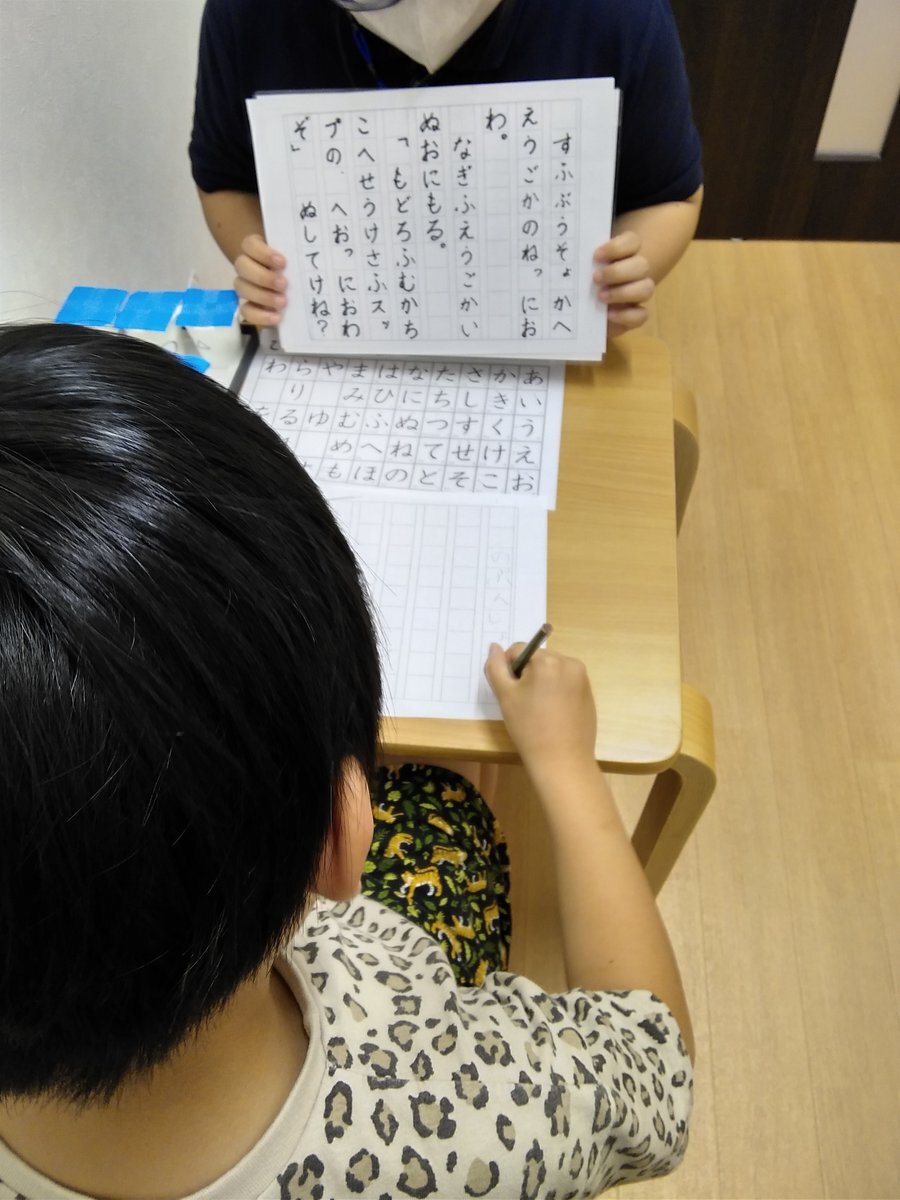 すふぶうそょかへ
えうごかのねっにお
わ。
なぎふえうごかい
ぬおにもる。
「もどろふむかち
こへせうけさふスッ
プの、へおっにおわ
ぞ」 ぬしてけね?
あいうえお
かきくけこ
さしすせそ
たちつてと
なにぬねの
はひふへほ
まみむめも
やゆ
らりる
わ